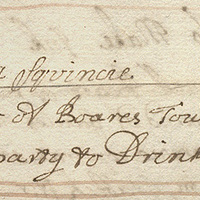 Squincie.
of Boares Tou
party to Drink